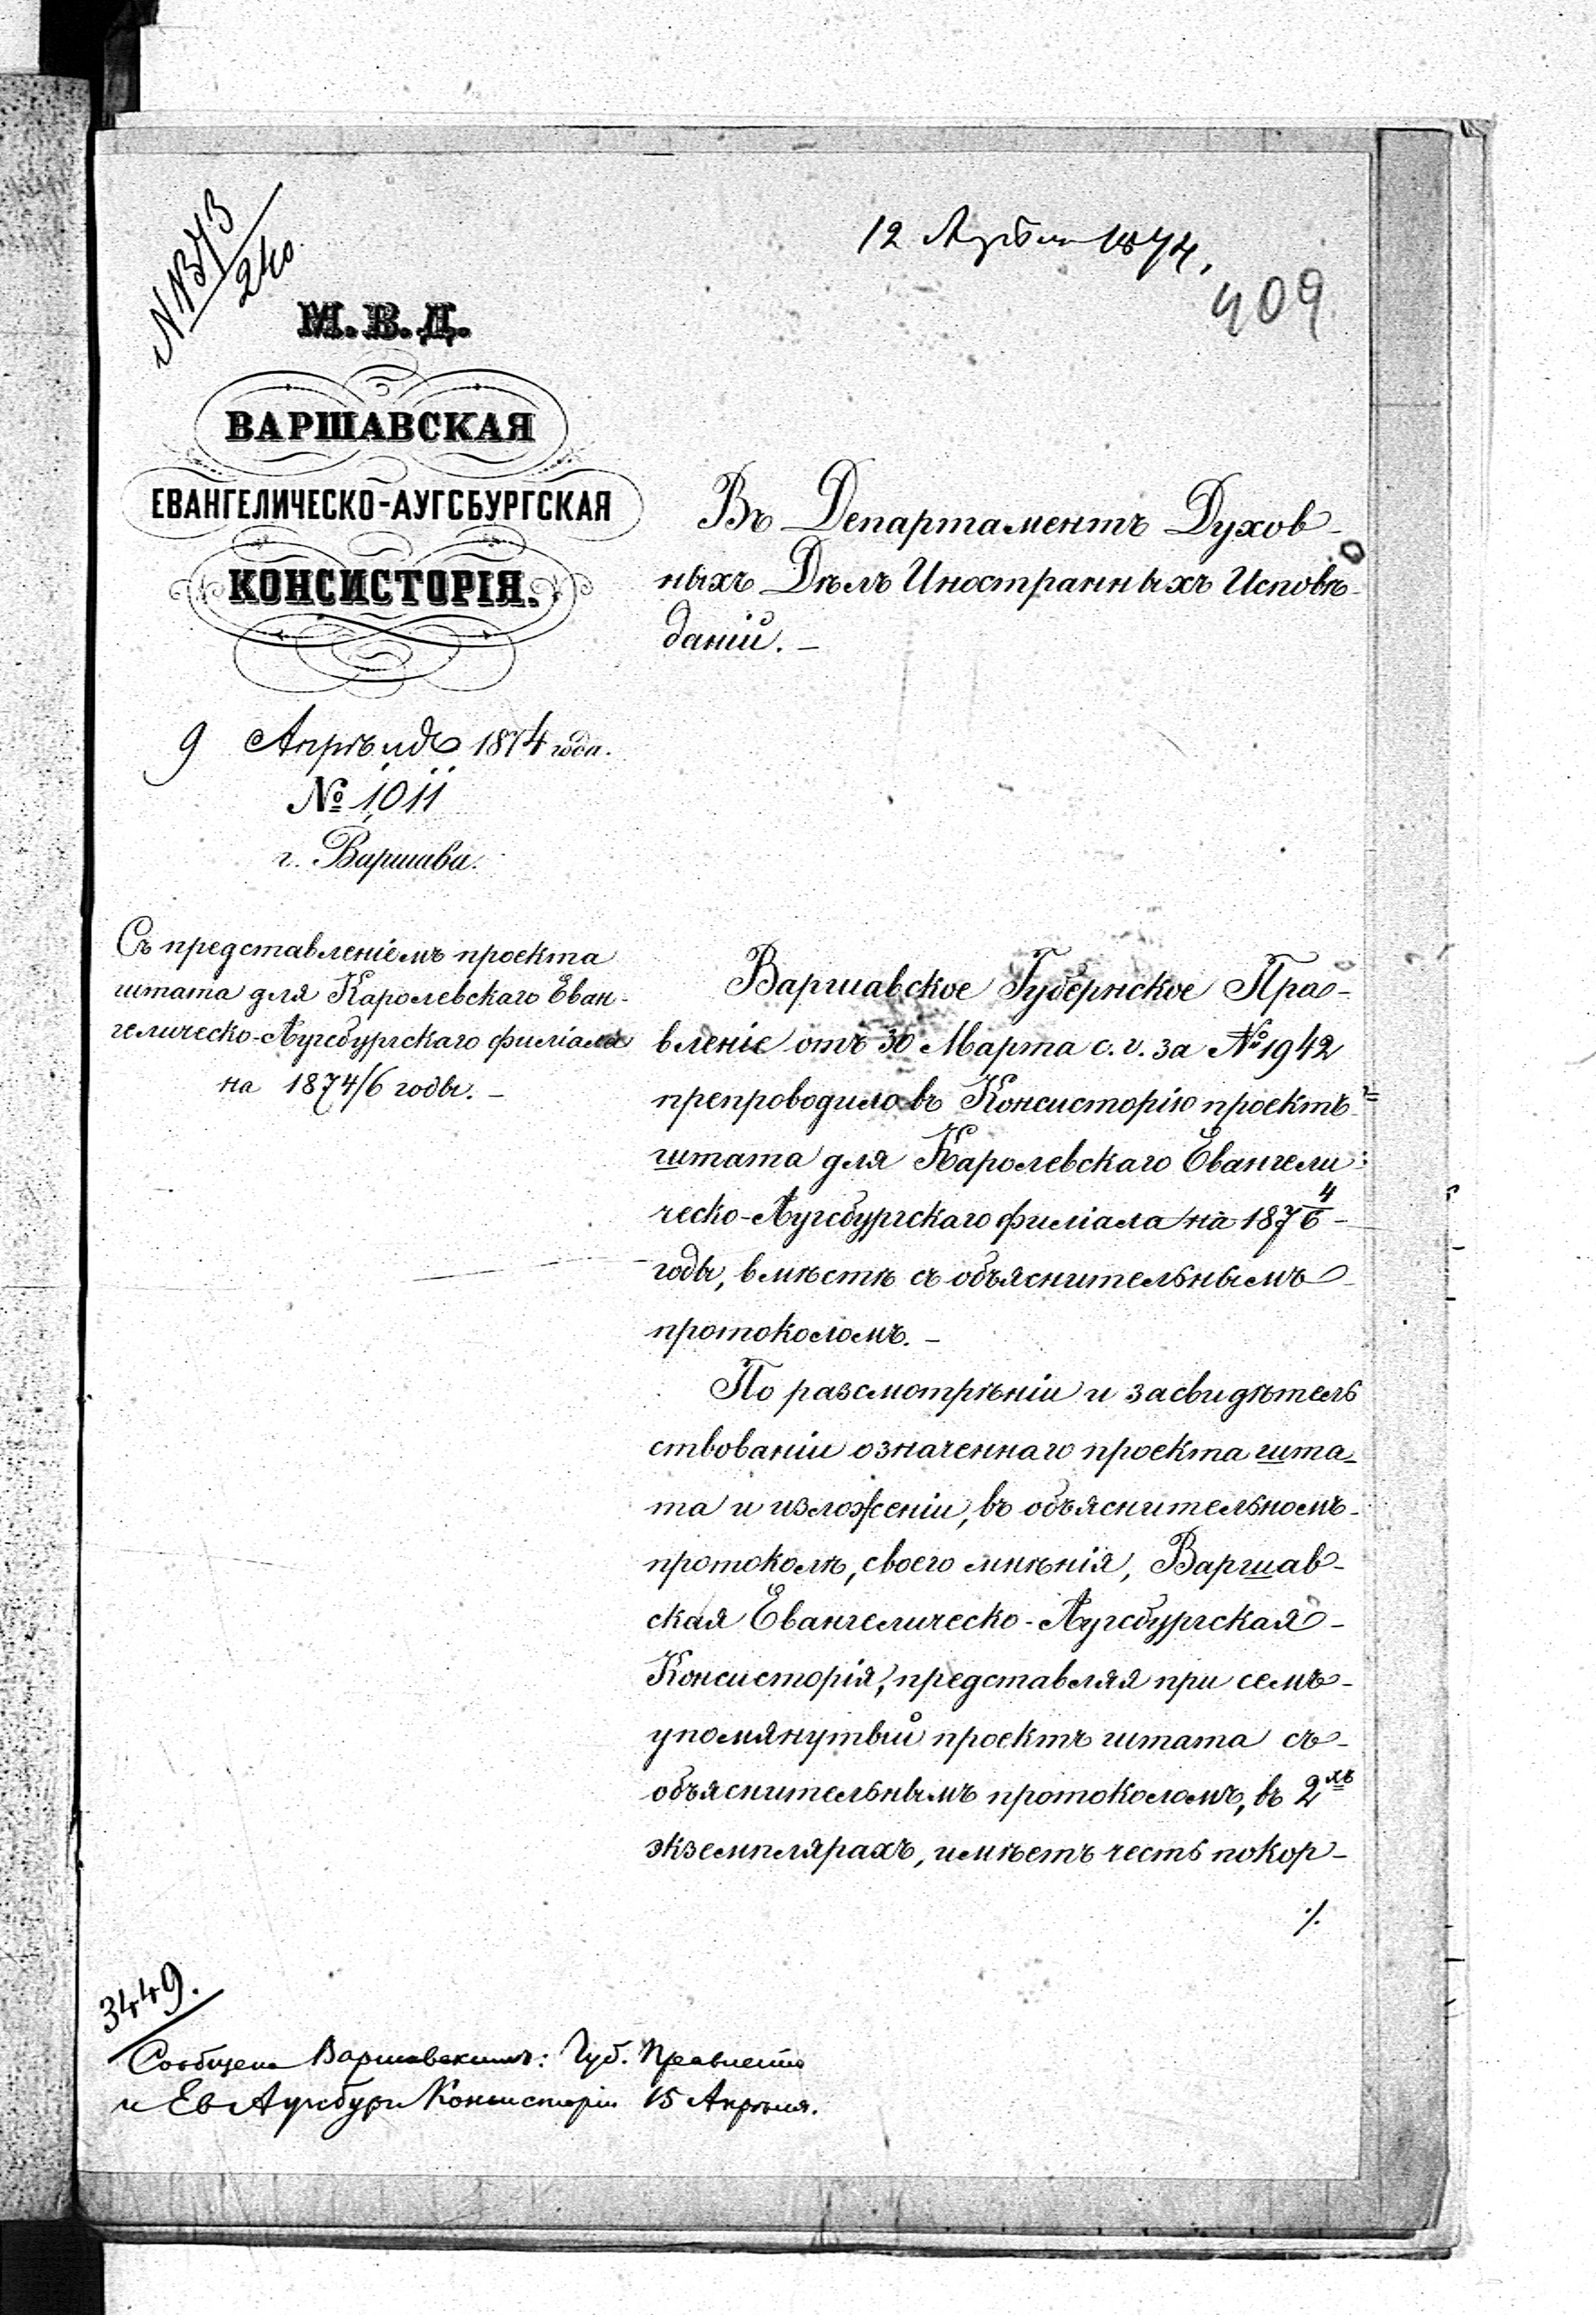 12 Апрѣля 1874,
409
№ 1373
240
М. В. Д.
ВАРШАВСКАЯ
ЕВАНГЕЛИЧЕСКО-АУГСБУРГСКАЯ
КОНСИСТОРІЯ.
9 Апрѣля 1874 года.
№ 1,011
г. Варшава.
Съ представленіемъ проекта
штата для Каролевскаго Еван-
гелическо-Аугсбургскаго филіала
на 1874/6 годы. –
Въ Департаментъ Духов-
ныхъ Дѣлъ Иностранныхъ Исповѣ-
даній. –
Варшавское Губернское Пра-
вленіе отъ 30 Марта с. г. за № 1942
препроводило въ Консисторію проектъ
штата для Каролевскаго Евангели:
ческо-Аугсбургскаго филіала на 187 4/6 -
годы, вмѣстѣ съ объяснительнымъ
протоколомъ. –
По разсмотрѣніи и засвидѣтель
ствованіи означеннаго проекта шта-
та и изложеніи, въ объяснительномъ-
протоколѣ, своего мнѣнія, Варшав-
ская Евангелическо-Аугсбургская -
Консисторія, представляя при семъ -
упомянутый проектъ штата съ -
объяснительнымъ протоколомъ, въ 2хъ
экземплярахъ, имѣетъ честь покор-
./.
3449.
Сообщено Варшавскимъ: Губ. Правленію
и Ев Аугсбург Консисторіи 15 Апрѣля.